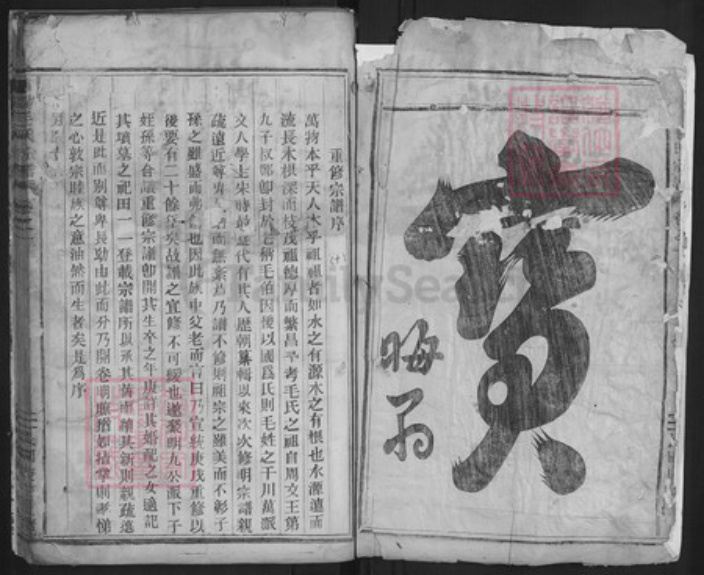 寶
晦翁
重修宗譜序
萬物本乎天人本乎祖祖者如水之有源木之有根也水源遠而
流長木根深而枝茂祖德厚而繁昌 考毛氏之祖自周文王第
九子 鄭卽封於毛 毛伯因後以國爲氏則毛姓之千川萬派
文人學士宋時 代有其人歷朝纂輯以來次次修明宗譜親
疏遠近尊卑 而無紊 乃譜不修則祖宗之雖美而不彰子
孫之雖盛而弗 也因此族中父老而言曰乃宣統庚戌重修以
後要有二十餘年矣故譜之宜修不可緩也遂 明九公派下子
姪孫等合議重修宗譜卽開其生卒之年庚 其婚配之女適記
其墳墓之祀田一一登載宗譜所以承其舊而續其新則親疏遠
近是此而別尊卑長幼由此而分乃開卷 明 指掌則孝悌
之心敦宗睦族之意油然而生者矣是爲序
FamilySearch